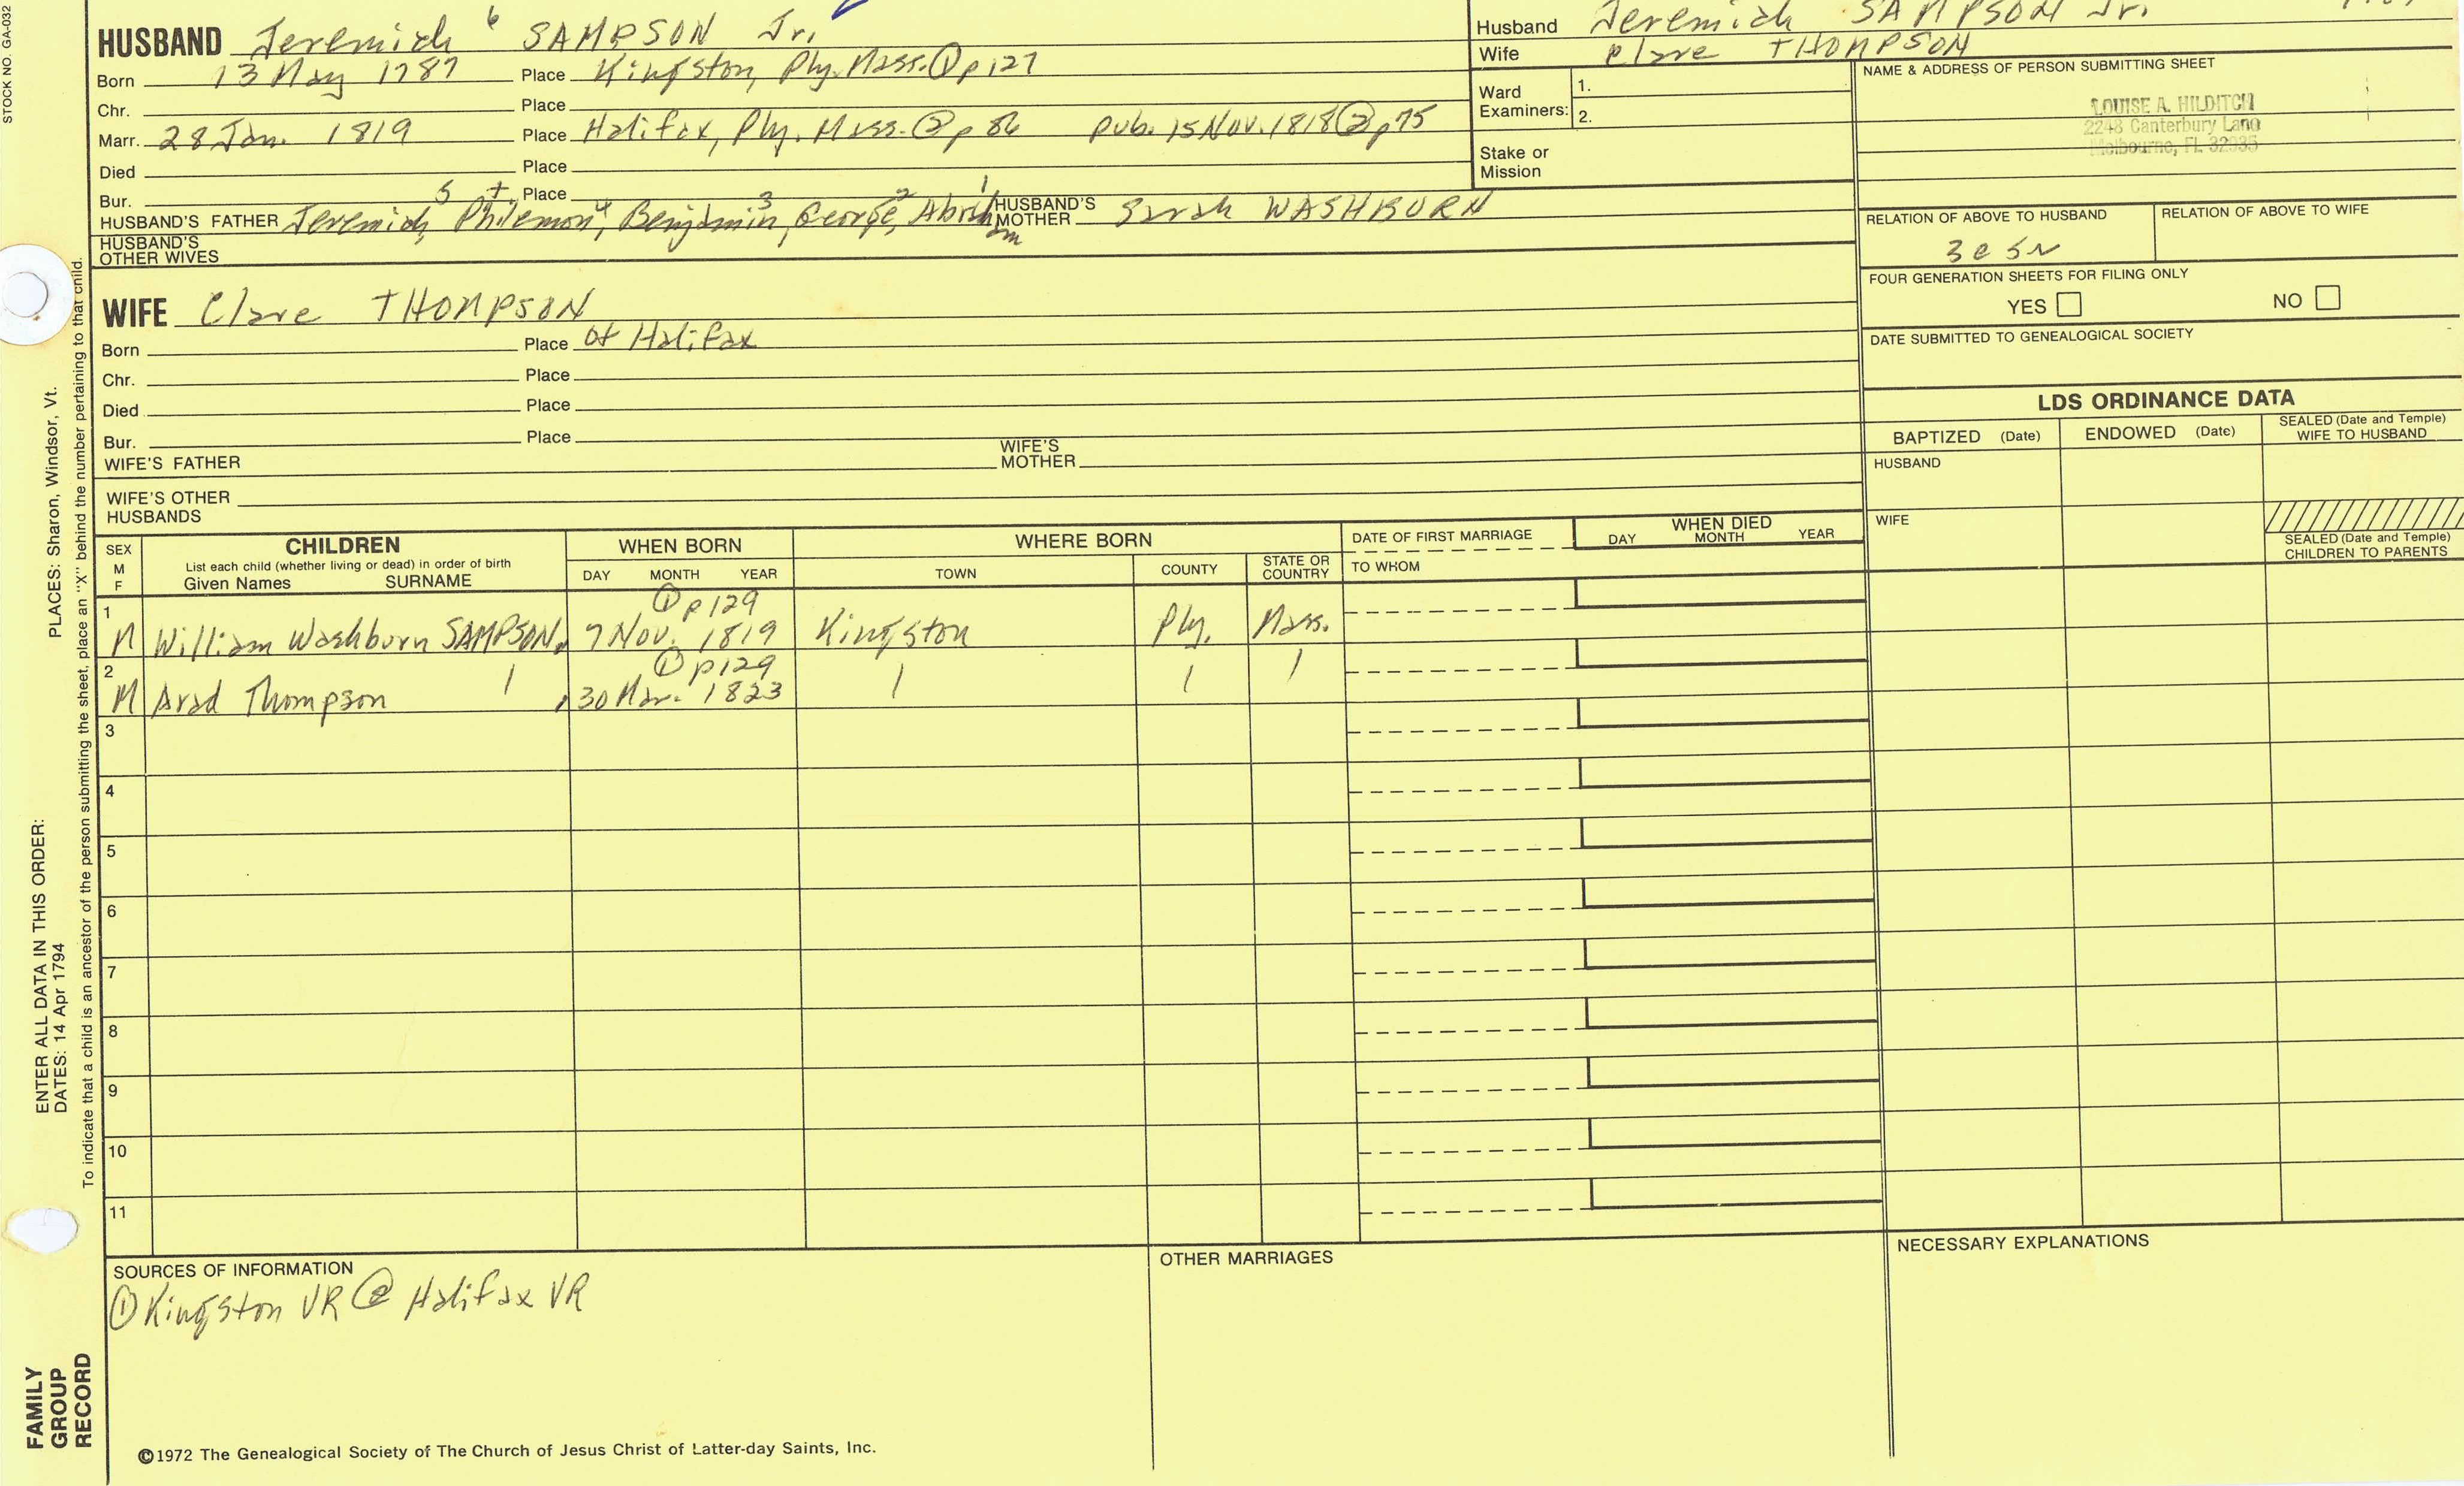 STOCK NO. GA-032
HUSBAND Jeremiah 6 SAMPSON Jr.
Born 13 May 1787 Place Kingston, Ply. Mass. ① p 127
Chr. Place
Marr. 28 Jan. 1819 Place Halifax, Ply. Mass. ② p 86 pub. 15 Nov. 1818 ② p 75
Died Place
Bur. Place
HUSBAND'S FATHER Jeremiah 5, Philemon 4, Benjamin 3, George 2, Abraham 1 HUSBAND'S MOTHER Sarah WASHBURN
HUSBAND'S OTHER WIVES
Husband Jeremiah SAMPSON Jr.
Wife Clare THOMPSON
Ward Examiners: 1.
2.
Stake or Mission
NAME & ADDRESS OF PERSON SUBMITTING SHEET
LOUISE A. HILDITCH
2248 Canterbury Lane
Melbourne, FL 32935
RELATION OF ABOVE TO HUSBAND RELATION OF ABOVE TO WIFE
3c 5r
FOUR GENERATION SHEETS FOR FILING ONLY
YES NO
DATE SUBMITTED TO GENEALOGICAL SOCIETY
WIFE Clare THOMPSON
Born Place of Halifax
Chr. Place
Died Place
Bur. Place
WIFE'S FATHER WIFE'S MOTHER
WIFE'S OTHER HUSBANDS
LDS ORDINANCE DATA
BAPTIZED (Date) ENDOWED (Date) SEALED (Date and Temple) WIFE TO HUSBAND
HUSBAND
WIFE
SEALED (Date and Temple) CHILDREN TO PARENTS
SEX M F CHILDREN List each child (whether living or dead) in order of birth Given Names SURNAME
WHEN BORN DAY MONTH YEAR
WHERE BORN TOWN COUNTY STATE OR COUNTRY
DATE OF FIRST MARRIAGE TO WHOM
WHEN DIED DAY MONTH YEAR
① p 129
1 M William Washburn SAMPSON 7 Nov. 1819 Kingston Ply. Mass.
① p 129
2 M Arad Thompson 30 Mar. 1823
3
4
5
6
7
8
9
10
11
SOURCES OF INFORMATION
① Kingston VR ② Halifax VR
OTHER MARRIAGES
NECESSARY EXPLANATIONS
©1972 The Genealogical Society of The Church of Jesus Christ of Latter-day Saints, Inc.
ENTER ALL DATA IN THIS ORDER:
DATES: 14 Apr 1794
PLACES: Sharon, Windsor, Vt.
To indicate that a child is an ancestor of the person submitting the sheet, place an "X" behind the number pertaining to that child.
FAMILY
GROUP
RECORD